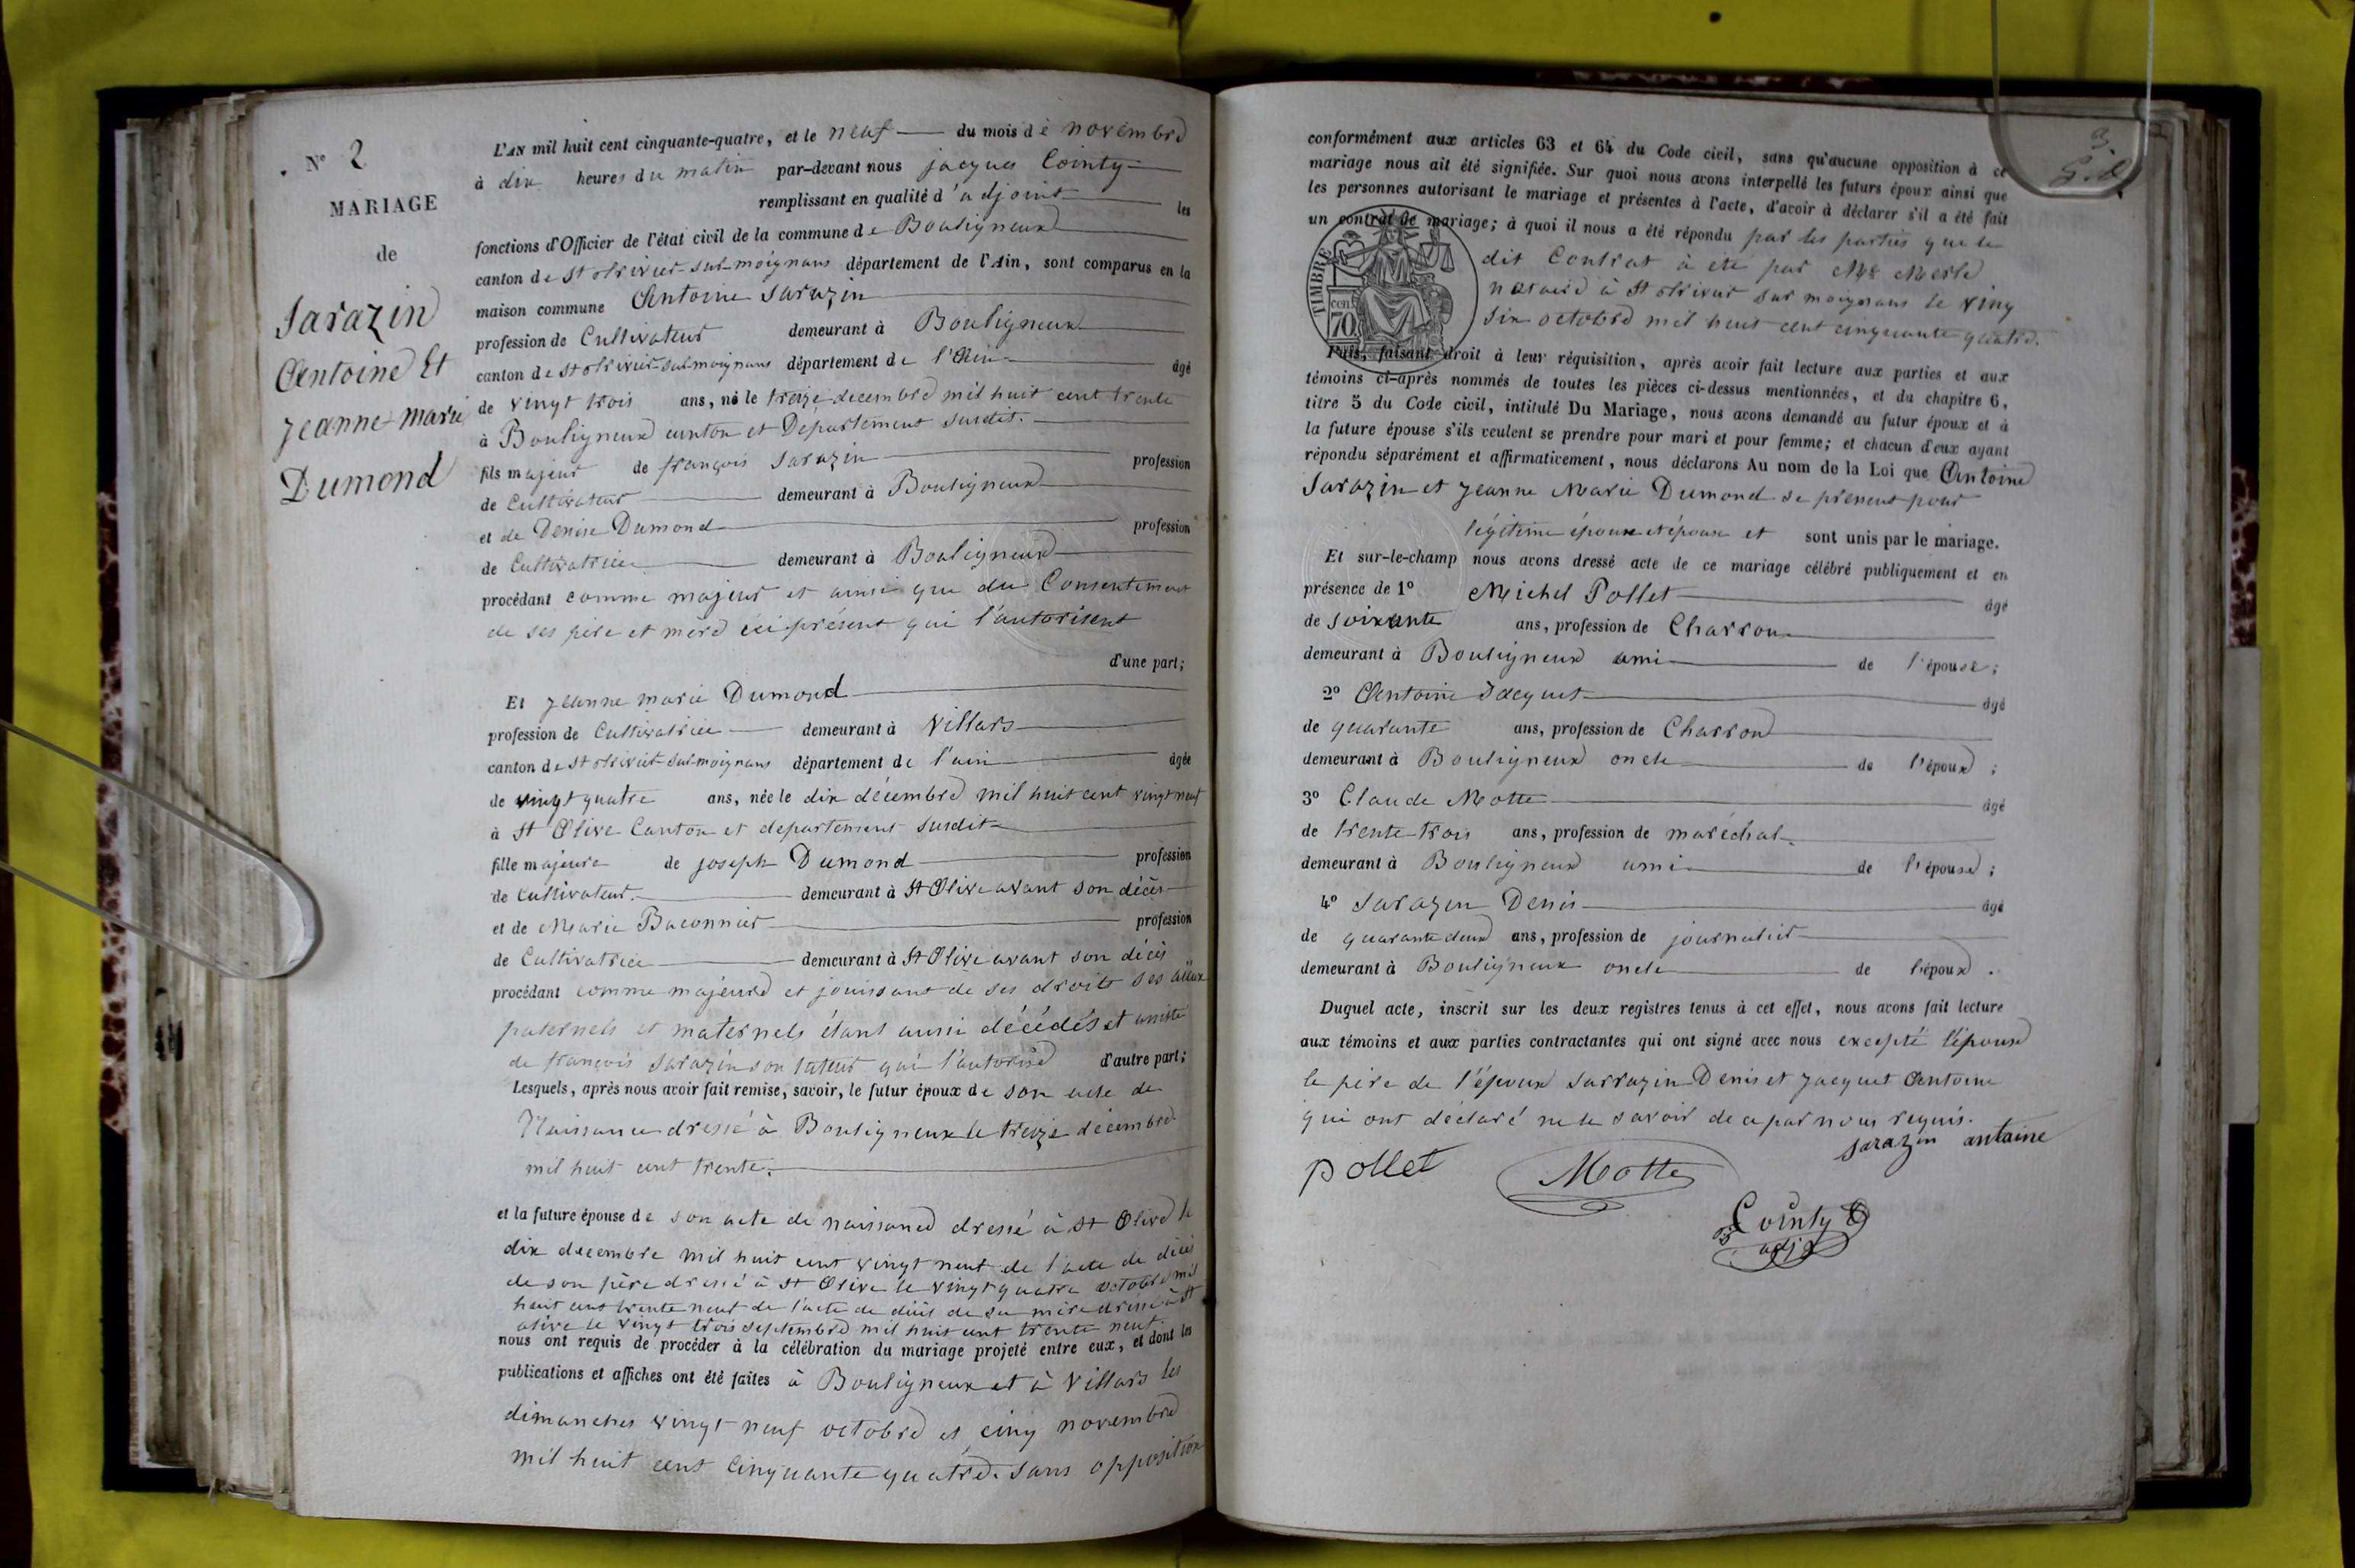 N° 2
MARIAGE
de
Sarazin
Antoine Et
Jeanne-marie
Dumond
L'AN mil huit cent cinquante-quatre, et le neuf du mois de novembre
à dix heures du matin par-devant nous jacques Cointy
remplissant en qualité d'adjoint les
fonctions d'Officier de l'état civil de la commune de Bouligneux
canton de St olrivier-sur-moignans département de l'Ain, sont comparus en la
maison commune Antoine Sarazin
profession de Cultivateur demeurant à Bouligneux
canton de St olrivier-sur-moignans département de l'Ain âgé
de vingt trois ans, né le treize decembre mil huit cent trente
à Bouligneux canton et Département susdit.
fils majeur de françois Sarazin profession
de Cultivateur demeurant à Bouligneux
et de Denise Dumond profession
de Cultivatrice demeurant à Bouligneux
procédant comme majeur et ainsi que du Consentement
de ses père et mère ici présent qui l'autorisent
d'une part;
Et Jeanne marie Dumond
profession de Cultivatrice demeurant à Villars
canton de St olrivier-sur-moignans département de l'ain âgée
de vingt quatre ans, née le dix décembre mil huit cent vingt neuf
à St Olive Canton et departement susdit
fille majeure de joseph Dumond profession
de Cultivateur. demeurant à St Olive avant son décès
et de Marie Baconnier profession
de Cultivatrice demeurant à St Olive avant son décès
procédant comme majeure et jouissant de ses droits ses aïeux
paternels et maternels étant aussi décédés et assisté
de françois Sarazin son tuteur qui l'autorise d'autre part;
Lesquels, après nous avoir fait remise, savoir, le futur époux de son acte de
Naissance dressé à Bouligneux le treize décembre
mil huit cent trente.
et la future épouse de son acte de naissance dressé à St Olive le
dix decembre mil huit cent vingt neuf de l'acte de décès
de son père dressé à St Olive le vingt quatre octobre mil
huit cent trente neuf de l'acte de décès de sa mère dressé à St
olive le vingt trois septembre mil huit cent trente neuf.
nous ont requis de procéder à la célébration du mariage projeté entre eux, et dont les
publications et affiches ont été faites à Bouligneux et à Villars les
dimanches vingt neuf octobre et cinq novembre
mil huit cent cinquante quatre. sans opposition
3
conformément aux articles 63 et 64 du Code civil, sans qu'aucune opposition à ce
mariage nous ait été signifiée. Sur quoi nous avons interpellé les futurs époux ainsi que
les personnes autorisant le mariage et présentes à l'acte, d'avoir à déclarer s'il a été fait
un contrat de mariage; à quoi il nous a été répondu par les parties que le
dit Contrat à eté par Me Merle
notaire à St olrivier sur moignans le ving
six octobre mil huit cent cinquante quatre.
TIMBRE
cen
70
Puis, faisant droit à leur réquisition, après avoir fait lecture aux parties et aux
témoins ci-après nommés de toutes les pièces ci-dessus mentionnées, et du chapitre 6,
titre 5 du Code civil, intitulé Du Mariage, nous avons demandé au futur époux et à
la future épouse s'ils veulent se prendre pour mari et pour femme; et chacun d'eux ayant
répondu séparément et affirmativement, nous déclarons Au nom de la Loi que Antoine
Sarazin et Jeanne Marie Dumond se prenent pour
légitime époux et épouse et sont unis par le mariage.
Et sur-le-champ nous avons dressé acte de ce mariage célébré publiquement et en
présence de 1° Michel Pollet âgé
de soixante ans, profession de Charron
demeurant à Bouligneux ami de l'épouse;
2° Antoine Jacquet âgé
de quarante ans, profession de Charron
demeurant à Bouligneux oncle de l'époux;
3° Claude Motte âgé
de trente-trois ans, profession de maréchal
demeurant à Bouligneux ami de l'épouse;
4° Sarazin Denis âgé
de quarante deux ans, profession de journalier
demeurant à Bouligneux oncle de l'époux.
Duquel acte, inscrit sur les deux registres tenus à cet effet, nous avons fait lecture
aux témoins et aux parties contractantes qui ont signé avec nous excepté l'épouse
le père de l'époux Sarrazin Denis et Jacquet Antoine
qui ont déclaré ne le savoir de ce par nous requis.
sarazin antoine
pollet Motte
Cointy
adj